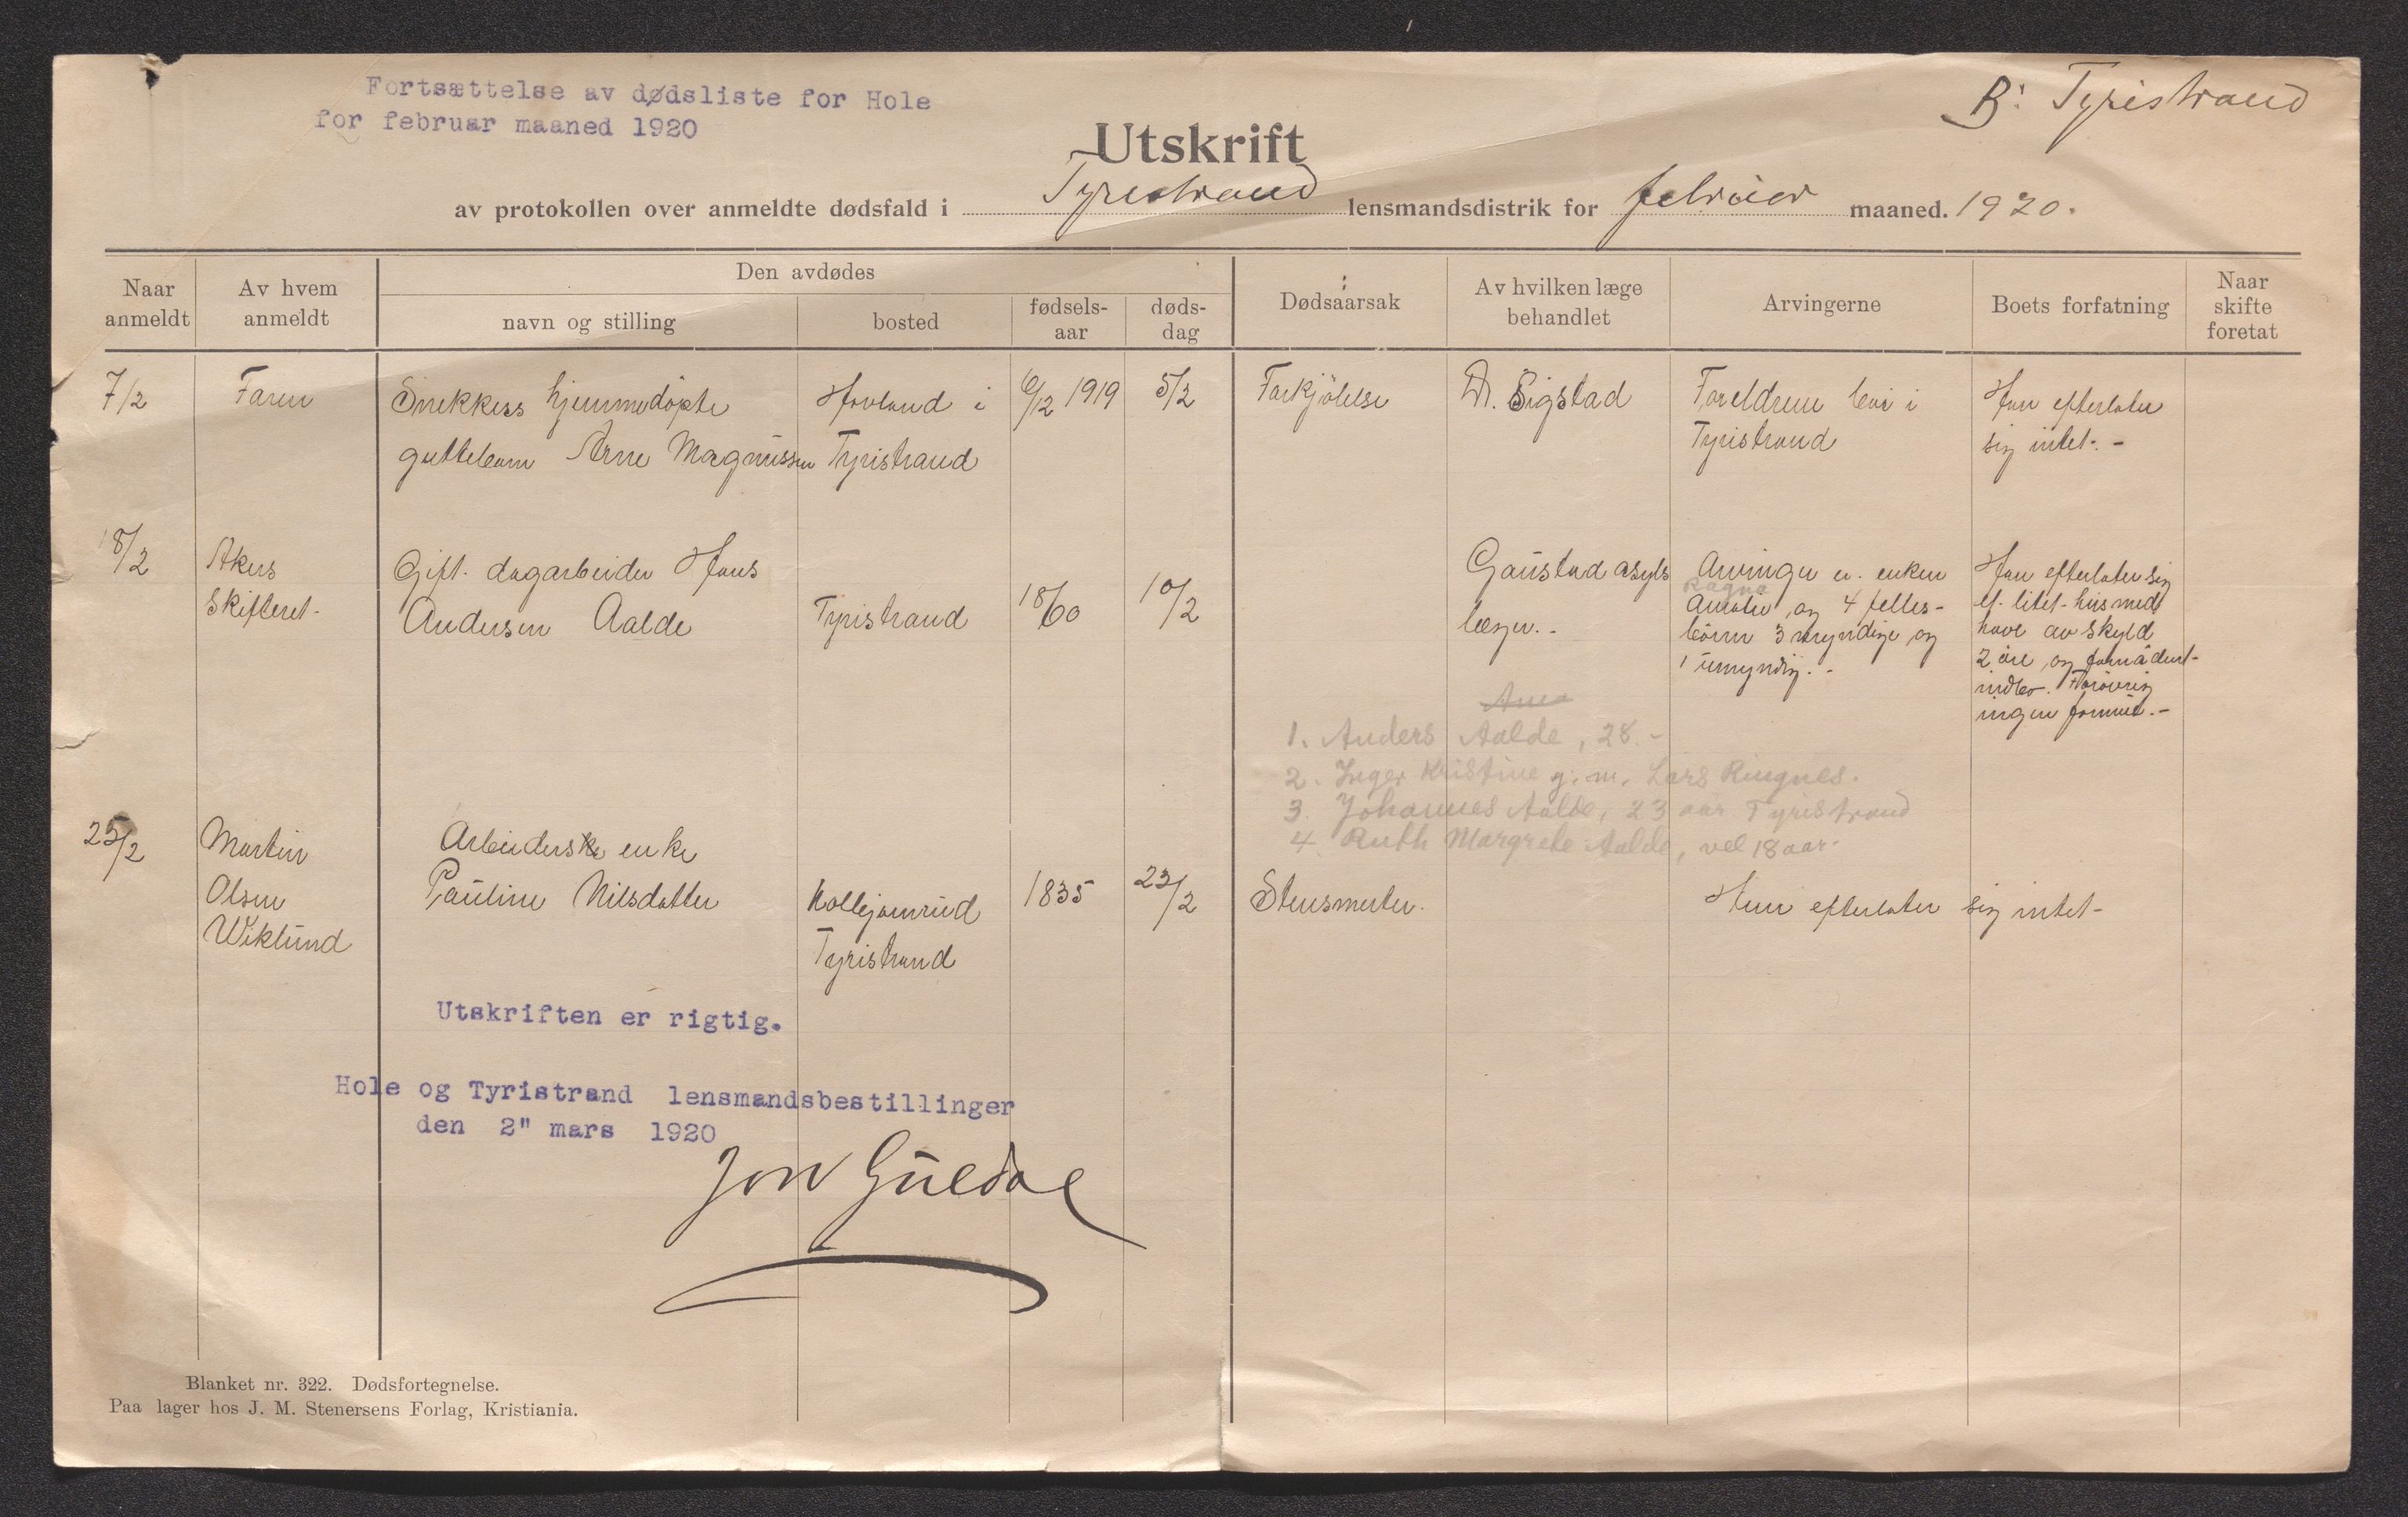 Fortsættelse av dødsliste for Hole
for februar maaned 1920
B: Tyristrand
Utskrift
av protokollen over anmeldte dødsfald i Tyristrand lensmandsdistrik for februar maaned. 1920.
Naar anmeldt
Av hvem anmeldt
Den avdødes
navn og stilling
bosted
fødsels-aar
døds-dag
Dødsaarsak
Av hvilken læge behandlet
Arvingerne
Boets forfatning
Naar skifte foretat
7/2
Faren
Snekkers hjemmedøpte
guttebarn Arne Magnussen
Hovland i
Tyristrand
6/12 1919
5/2
Forkjölelse
Dr. Sigstad
Foreldrene bor i
Tyristrand
Han efterlater
sig intet. -
18/2
Akers
Skifteret.
Gift. dagarbeider Hans
Andersen Aalde
Tyristrand
18/60
10/2
Gaustad asyls
læger. -
Arvinger er. enken
Ragna
Amalie, og 4 felles-
börn 3 myndige og
1 umyndig. -
Han efterlater sig
et litet husmed
have av skyld
2 öre, og
indbo. Forövrig
ingen formue. -
1. Anders Aalde, 28. -
2. Inger Kristine g. m. Lars Ringnes.
3. Johannes Aalde, 23 aar Tyristrand
4. Ruth Margrete Aalde, vel 18 aar.
25/2
Martin
Olsen
Wiklund
Arbeiderske enke
Pauline Nilsdatter
Kolbjørnrud
Tyristrand
1835
23/2
Stensmerter.
Hun efterlater sig intet -
Utskriften er rigtig.
Hole og Tyristrand lensmandsbestillinger
den 2" mars 1920
Jon Guldal
Blanket nr. 322. Dødsfortegnelse.
Paa lager hos J. M. Stenersens Forlag, Kristiania.